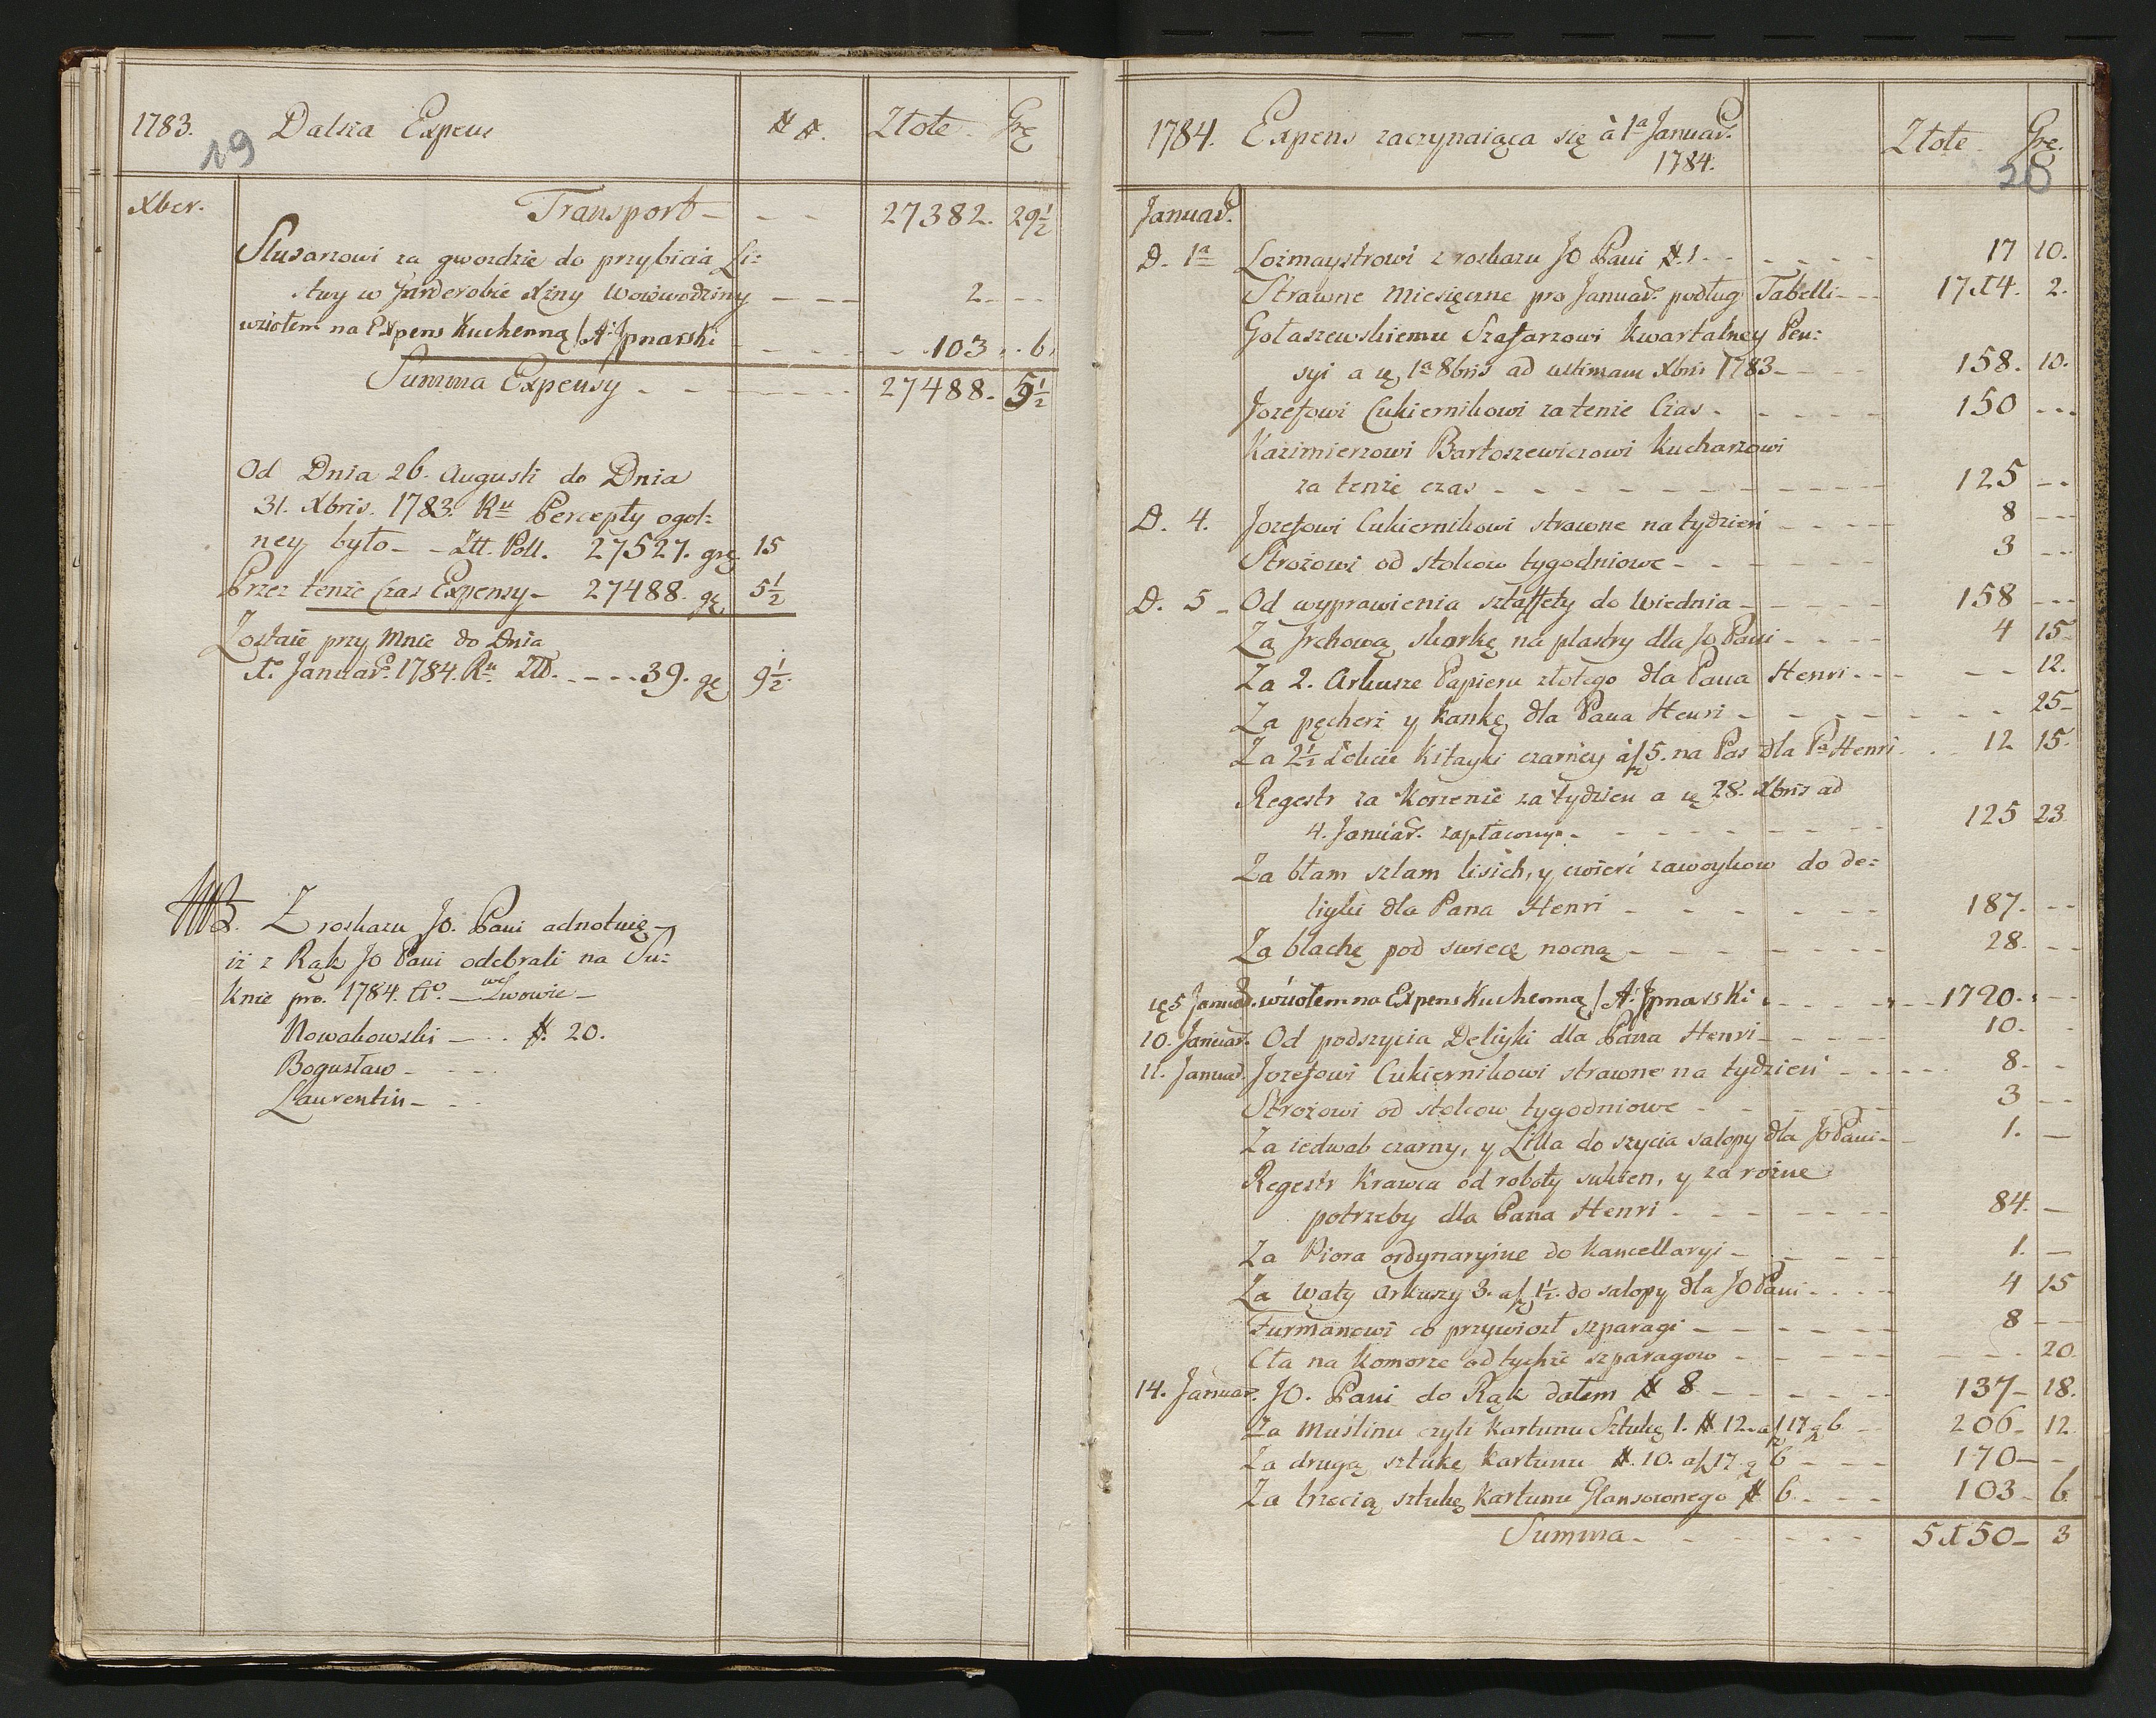 1783. Dalsza Expens ## #. Złote. Grę
19
Xber. Transport - - - 27382. 29½
Slusarzowi za gwozdzie do przybicia Li=
stwy w Garderobie Xiny Woiewodziny - - - 2 - -
wziołem na Expens Kuchenną /A: Jpnarski - - - 103 . 6.
Summa Expensy - - - 27488. 5½
Od Dnia 26. Augusti do Dnia
31. Xbris. 1783. Ru Percepty ogol=
ney było - - Ztt. Poll. 27527. grę 15
Przez tenże Czas Expensy - 27488. gę 5½
Zostaie przy Mnie do Dnia
1. Januar. 1784. Ru - - - 39. gę 9½
NB. Z roskazu JO. Pani adnotuię
iż z Rąk JO Pani odebrali na Su=
knie pro. 1784. Ao. - we Lwowie -
Nowakowski - - - #. 20.
Bogusław - - -
Laurentin - - -
1784. Expens zaczynaiąca się à 1a Januar. Złote. Grę.
1784.
20
Januar.
D. 1a Lozmaystrowi z roskazu JO Pani #. 1 - - - 17 10.
Strawne Miesięczne pro Januar. podług Tabelli - - - 1714. 2.
Gołaszewskiemu Szafarzowi Kwartalney Pen=
syi a ę 1a 8bris ad ultimam Xbris 1783 - - - 158. 10.
Jozefowi Cukiernikowi za tenże Czas - - - 150 - - -
Kazimierzowi Bartoszewiczowi Kucharzowi
za tenże czas - - - 125 - -
D. 4. Jozefowi Cukiernikowi strawne na tydzień - - - 8 - - -
Strożowi od stolcow tygodniowe - - - 3 - - -
D. 5 - Od wyprawienia sztaffety do Wiednia - - - 158 - - -
Za Jrchową skorkę na plastry dla JO Pani - - - 4 15
Za 2. Arkusze Papieru złotego dla Pana Henri - - - 12.
Za pęcherz y kankę dla Pana Henri - - - 25 -
Za 2½ Łokcie Kitayki czarney à f 5. na Pas dla Pa Henri - - 12 15.
Regestr za Korzenie za tydzien a ę 28. Xbris ad
4. Januar. zapłacony - - - 125 23
Za błam szlam lisich, y cwierć zawoykow do de=
liyki dla Pana Henri - - - 187. - -
Za blachę pod swiecę nocną - - - 28. - -
ę 5 Januar. wziołem na Expens Kuchenną /A: Jpnarski - - - 1720. - -
10. Januar. Od podszycia Deliyki dla Pana Henri - - - 10. -
11. Januar. Jozefowi Cukiernikowi strawne na tydzień - - - 8. - -
Strożowi od stolcow tygodniowe - - - 3 - -
Za iedwab czarny, y Lilla do szycia salopy dla JO Pani - - 1. -
Regestr Krawca od roboty sukien, y za rożne
potrzeby dla Pana Henri - - - 84. -
Za Piora ordynaryine do kancellaryi - - - 1. -
Za waty Arkuszy 3. a f 1½. do salopy dla JO Pani - - - 4 15
Furmanowi co przywiozł szparagi - - - 8 - -
Cła na Komorze od tychże szparagow - - - 20
14. Januar. JO. Pani do Rąk dałem # 8 - - - 137 - 18.
Za Muślinu czyli kartunu Sztukę 1. # 12. a f 17 g 6 - 206 - 12
Za drugą sztukę kartunu #. 10. a f 17. g 6 - - - 170 - -
Za trzecią sztukę kartunu Glansowonego # 6 - - - 103 - 6
Summa - - - 5150 - 3